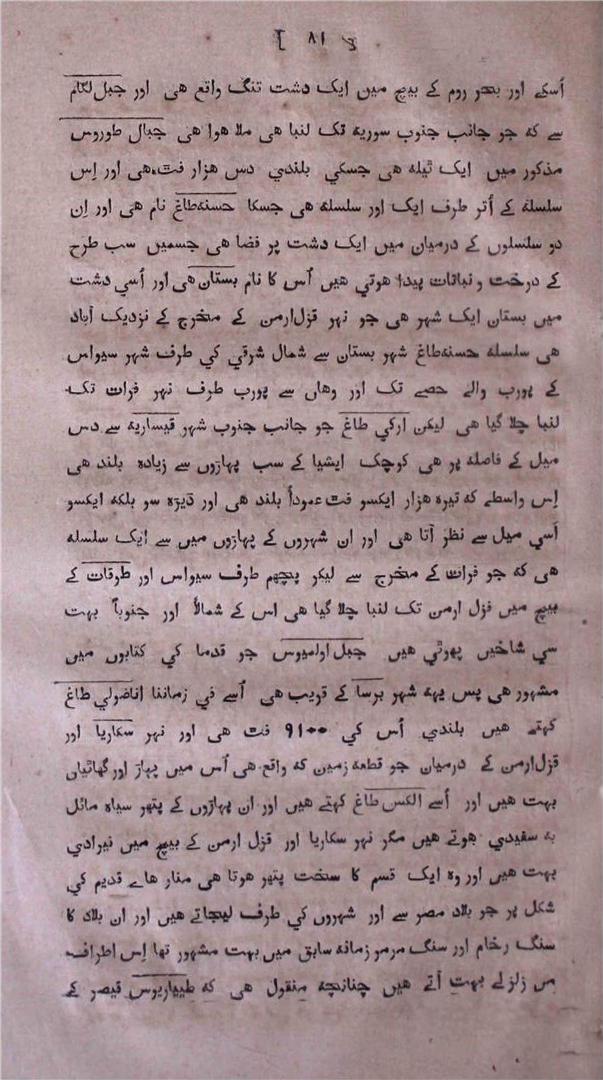 [ ٨١ ]
اُسکے اور بحر روم کے بیچ میں ایک دشت تنگ واقع هی اور جبل لکام
سے کہ جو جانب جنوب سوریہ تک لنبا هی ملا هوا هی جبال طوروس
مذکور میں ایک ٹیلہ هی جسکی بلندي دس هزار فت هی اور اِس
سلسلہ کے اُتر طرف ایک اور سلسلہ هی جسکا حسنه طاغ نام هی اور اِن
دو سلسلوں کے درمیان میں ایک دشت پر فضا هی جسمیں سب طرح
کے درخت و نباتات پیدا هوتي هیں اُس کا نام بستان هی اور اُسي دشت
میں بستان ایک شہر هی جو نہر قزل ارمن کے مخرج کے نزدیک آباد
هی سلسلہ حسنه طاغ شہر بستان سے شمال شرقي کي طرف شہر سیواس
کے پورب والے حصے تک اور وهاں سے پورب طرف نہر فرات تک
لنبا چلا گیا هی لیکن ارکي طاغ جو جانب جنوب شہر قیساریہ سے دس
میل کے فاصلہ پر هی کوچک ایشیا کے سب پہاڑوں سے زیادہ بلند هی
اِس واسطے کہ تیرہ هزار ایکسو فت عموداً بلند هی اور ڈیڑہ سو بلکہ ایکسو
اَسي میل سے نظر آتا هی اور ان شہروں کے پہاڑوں میں سے ایک سلسلہ
هی کہ جو فرات کے مخرج سے لیکر پچھم طرف سیواس اور طوقات کے
بیچ میں قزل ارمن تک لنبا چلا گیا هی اس کے شمالاً اور جنوباً بہت
سي شاخیں پھوٹي هیں جبل اولمپوس جو قدما کي کتابوں میں
مشہور هی پس یہہ شہر برسا کے قریب هی اُسے في زماننا اناضولي طاغ
کہتے هیں بلندي اُس کي ٩١٠٠ فت هی اور نہر سکاریا اور
قزل ارمن کے درمیان جو قطعہ زمین کہ واقع هی اُس میں پہاڑ اور گھاٹیاں
بہت هیں اور اُسے الکس طاغ کہتے هیں اور ان پہاڑوں کے پتھر سیاہ مائل
بہ سفیدي هوتے هیں مگر نہر سکاریا اور قزل ارمن کے بیچ میں
بہت هیں اور وہ ایک قسم کا سخت پتھر هوتا هی منار هاے قدیم کي
شکل پر جو بلاد مصر سے اور شہروں کي طرف لیجاتے هیں اور ان بلاد کا
سنگ رخام اور سنگ مرمر زمانہ سابق میں بہت مشہور تھا اِس اطراف
میں زلزلے بہت آتے هیں چنانچہ منقول هی کہ طیباریوس قیصر کے